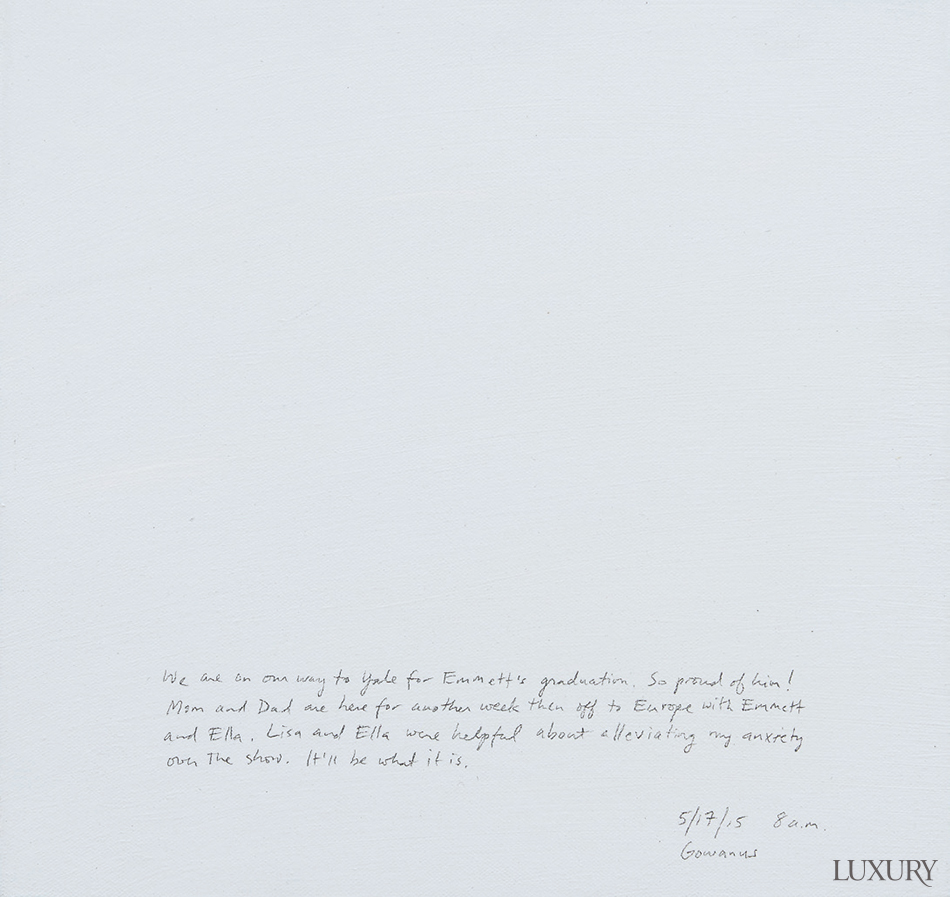 We are on our way to Yale for Emmett's graduation. So proud of him!
Mom and Dad are here for another week then off to Europe with Emmett
and Ella. Lisa and Ella were helpful about alleviating my anxiety
over the show. It'll be what it is.
5/17/15 8 a.m.
Gowanus
LUXURY